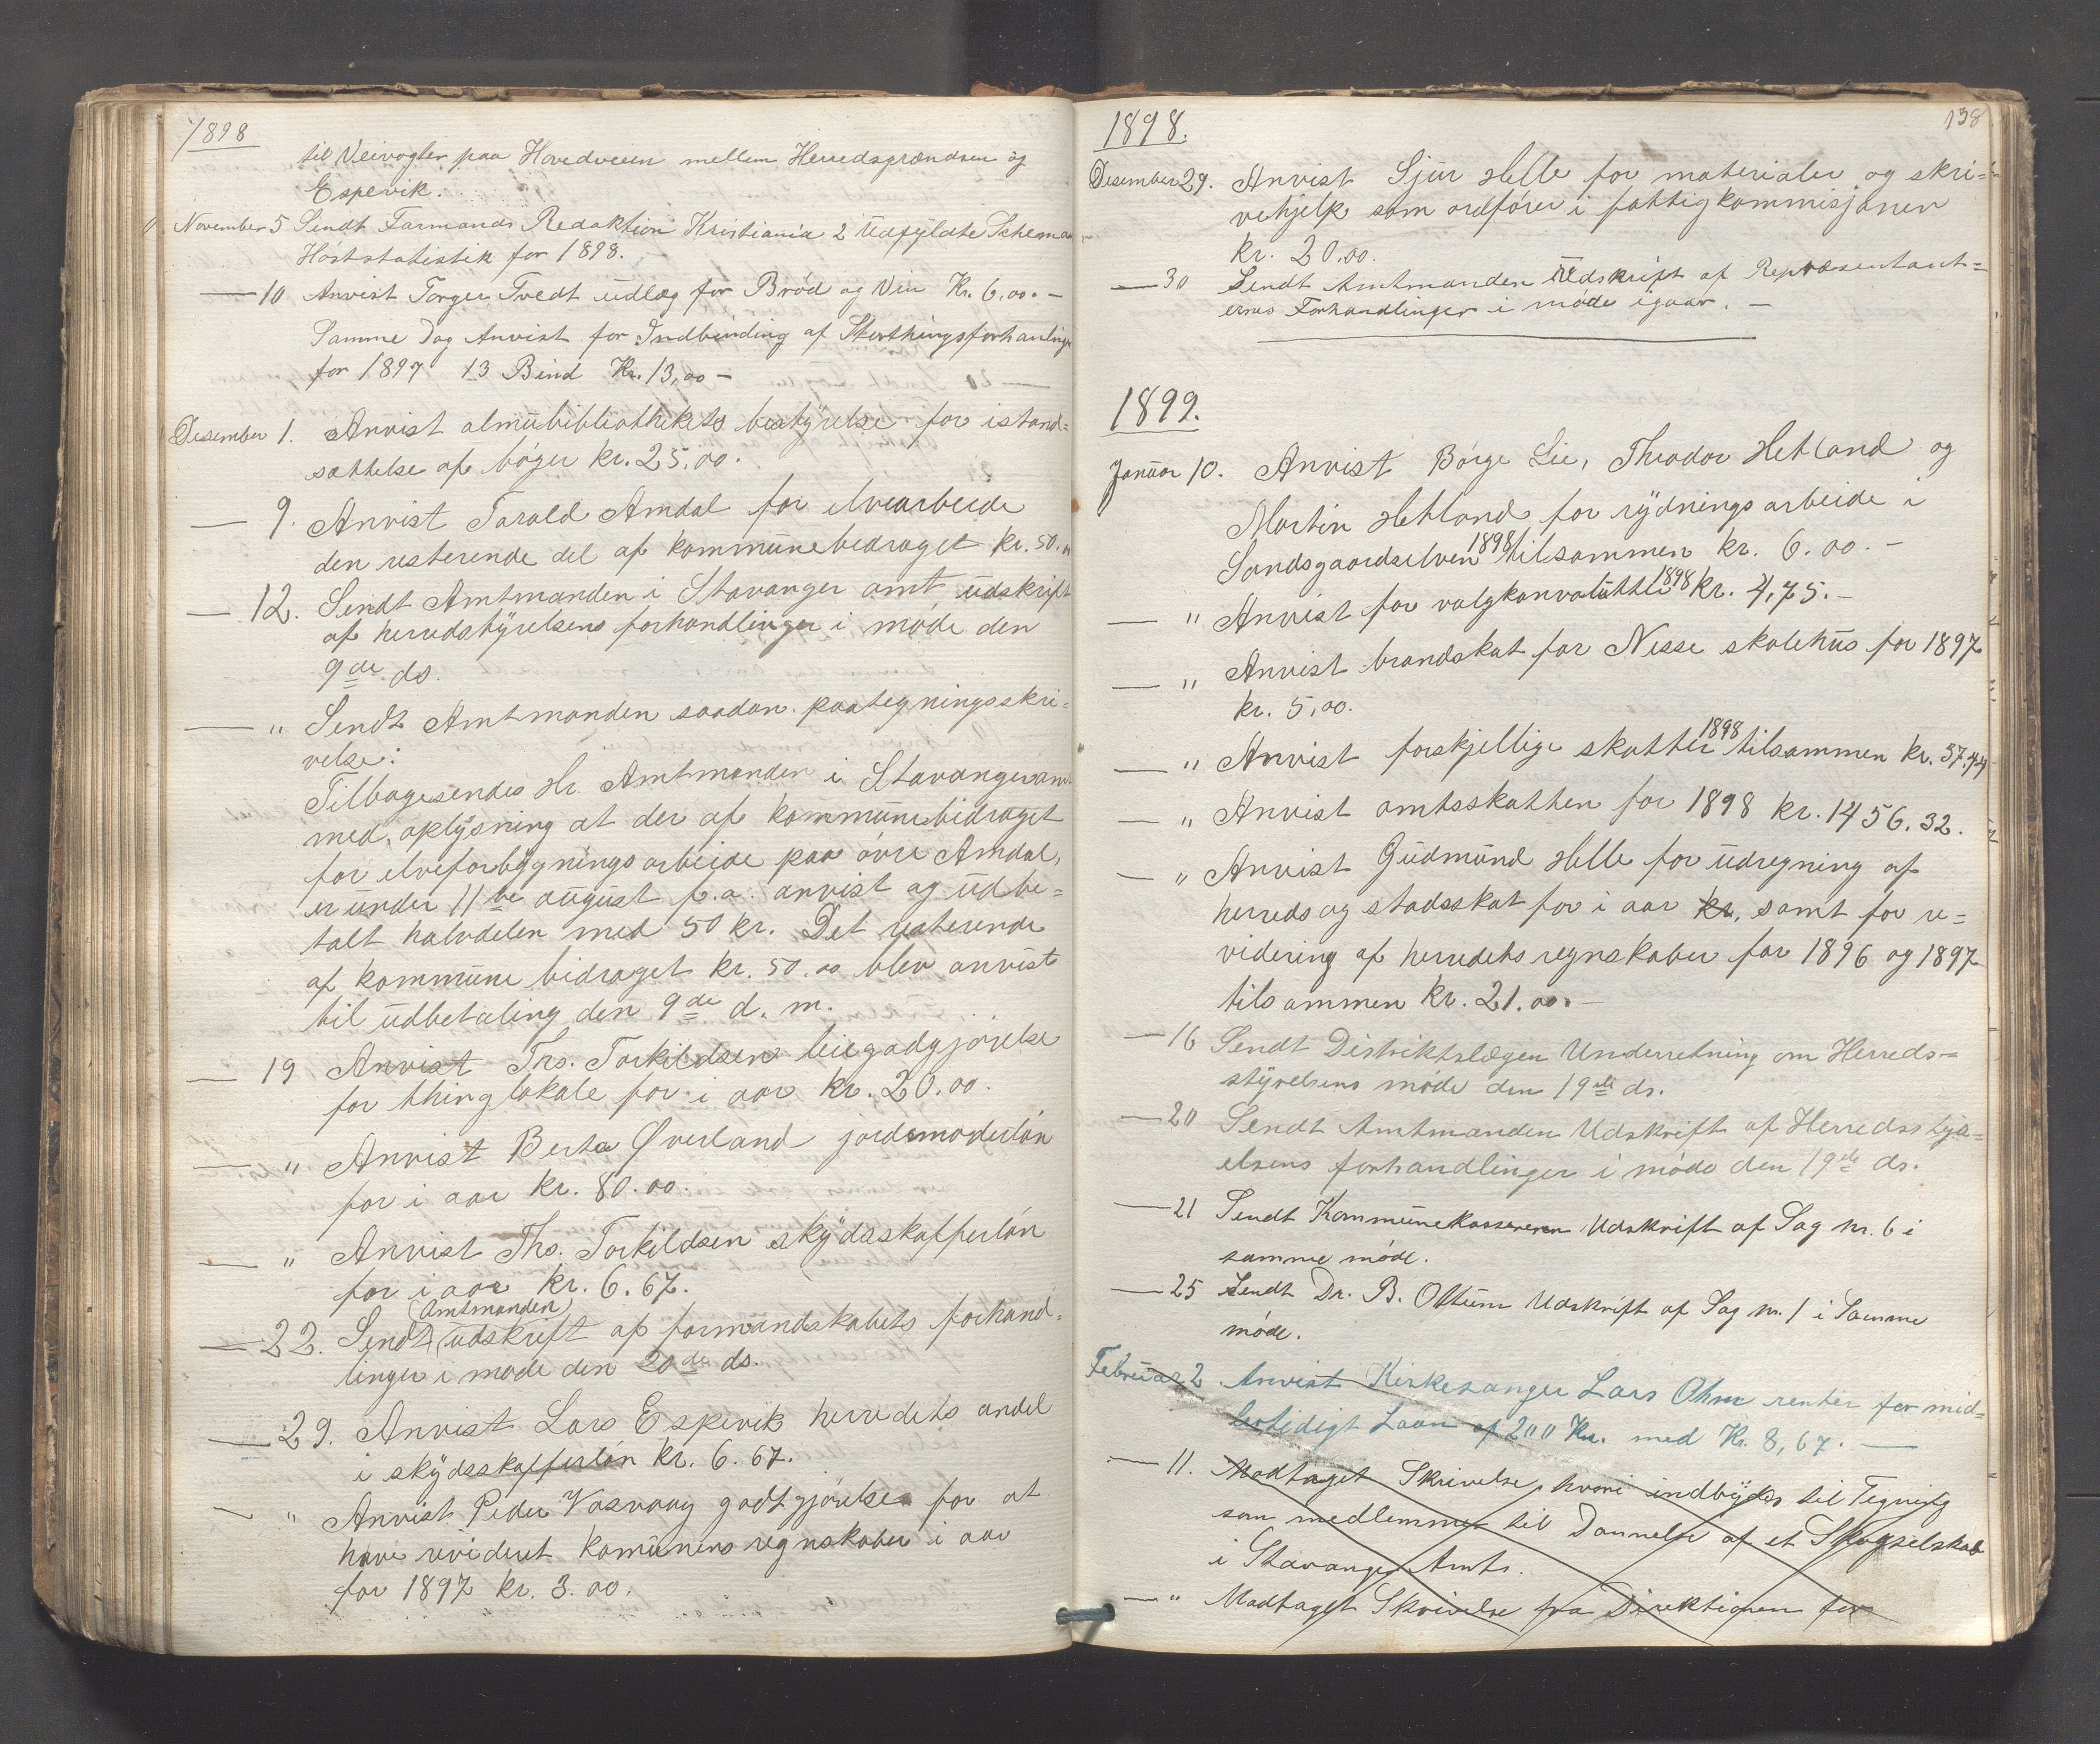 1898
til Veivogter paa Hovedveien mellem Herredsgrændsen og
Espevik.
November 5 Sendt Farmands Redaktion Kristiania 2 Udfyldte Schema
Høststatistik for 1898.
— 10 Anvist Torger Tvedt udlæg for Brød og Vin Kr. 6,00. —
Samme Dag Anvist for Indbinding af Storthingsforhanling
for 1897 13 Bind Kr. 13,00 —
Desember 1. Anvist almubibliothekets bestyrelse for istand=
sættelse af bøger kr. 25,00.
— 9. Anvist Tarald Amdal for elvearbeide
den resterende del af kommunebedraget kr. 50.
— 12. Sendt Amtmanden i Stavanger amt udskrift
af herredstyrelsens forhandlinger i møde den
9de ds.
— " Sendt Amtmanden saadan paategningsskri=
velse:
Tilbagesendes Hr. Amtmanden i Stavanger amt
med oplysning at der af kommunebidraget
for elveforbygningsarbeide paa øvre Amdal,
er under 11te august f. a. anvist og udbe=
talt halvdelen med 50 kr. Det resterende
af kommune bidraget kr. 50.00 blev anvist
til udbetaling den 9de d. m.
— 19 Anvist Ths. Torkildsen leiegodgjørelse
for thinglokale for i aar kr. 20.00.
— " Anvist Berta Øverland jordemoderløn
for i aar kr. 80.00.
— " Anvist Ths. Torkildsen skydsskafferløn
for i aar kr. 6.67.
(Amtmanden)
— 22. Sendt udskrift af formandskabets forhand=
linger i møde den 20de ds.
— 29. Anvist Lars Espevik herredets andel
i skydsskafferløn kr. 6.67.
— " Anvist Peder Vasvaag godtgjørelse for at
have revideret komunens regnskaber i aar
for 1897 kr. 3.00.
138
1898.
Desember 29. Anvist Sjur Helle for materialer og skri=
vehjelp som ordfører i fattigkommisjonen
kr. 20.00.
— 30 Sendt Amtmanden Udskrift af Repræsentant=
ernes Forhandlinger i møde igaar. —
1899.
Januar 10. Anvist Børge Lie, Theodor Hetland og
Martin Hetland for rydningsarbeide i
Sandsgaardselven 1898 tilsammen kr. 6.00. —
— " Anvist for valgkonvolutter 1898 kr. 4,75. —
— " Anvist brandskat for Nesse skolehus for 1897
kr. 5,00.
— " Anvist forskjellige skatter 1898 tilsammen kr. 37,44
— " Anvist amtsskatten for 1898 kr. 1456.32.
— " Anvist Gudmund Helle for udregning af
herreds og stadsskat for i aar kr. samt for re=
videring af herredets regnskaber for 1896 og 1897
tilsammen kr. 21.00. —
— 16 Sendt Distriktslægen Underretning om Herreds=
styrelsens møde den 19de ds.
— 20 Sendt Amtmanden Udskrift af Herredsstyr=
elsens forhandlinger i møde den 19de ds.
— 21 Sendt Kommunekassereren Udskrift af Sag nr. 6 i
samme møde.
— 25 Sendt Dr. B. Ottum Udskrift af Sag nr. 1 i Samme
møde.
Februar 2 Anvist Kirkesanger Lars Ohm renter for mid=
lertidigt Laan af 200 Kr. med Kr. 8,67. —
— 11. Modtaget Skrivelse, hvori indbydes til Tegning
som medlemmer til Dannelse af et Skogselskab
i Stavanger Amt.
— " Modtaget Skrivelse fra Direktionen for